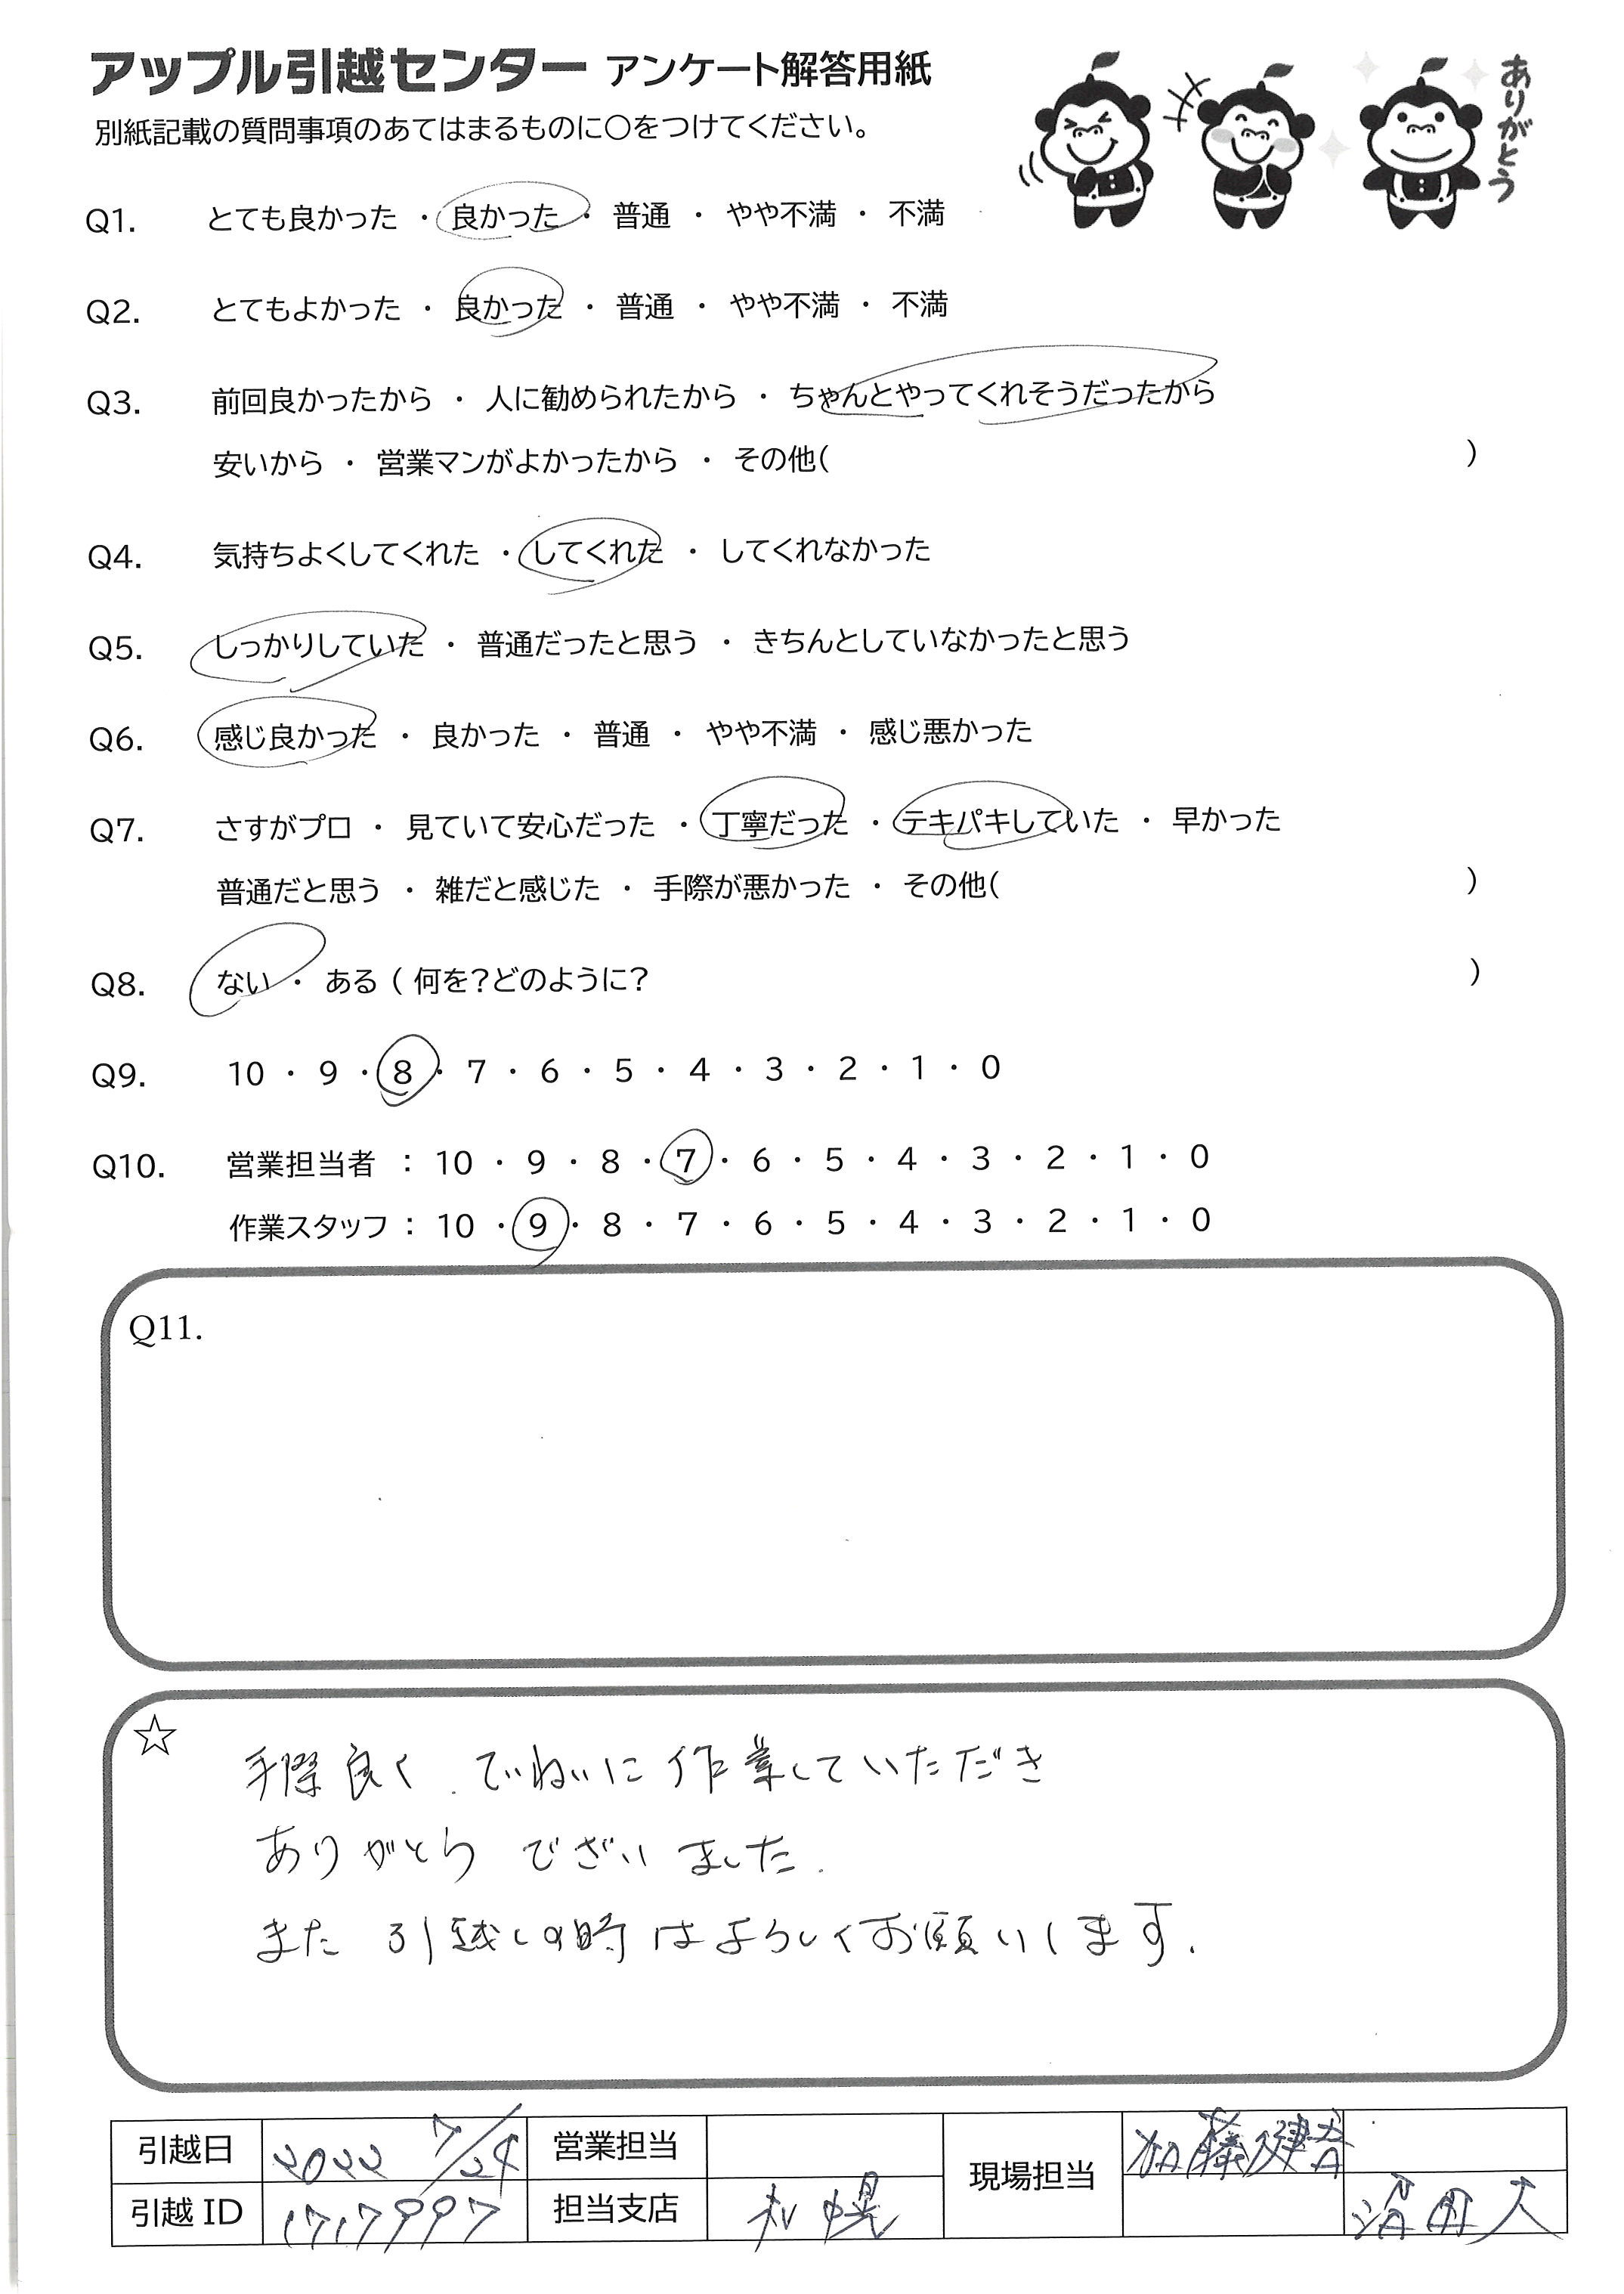 アップル引越センター アンケート解答用紙
別紙記載の質問事項のあてはまるものに○をつけてください。
ありがとう
Q1. とても良かった ・ 良かった ・ 普通 ・ やや不満 ・ 不満
Q2. とてもよかった ・ 良かった ・ 普通 ・ やや不満 ・ 不満
Q3. 前回良かったから ・ 人に勧められたから ・ ちゃんとやってくれそうだったから
安いから ・ 営業マンがよかったから ・ その他( )
Q4. 気持ちよくしてくれた ・ してくれた ・ してくれなかった
Q5. しっかりしていた ・ 普通だったと思う ・ きちんとしていなかったと思う
Q6. 感じ良かった ・ 良かった ・ 普通 ・ やや不満 ・ 感じ悪かった
Q7. さすがプロ ・ 見ていて安心だった ・ 丁寧だった ・ テキパキしていた ・ 早かった
普通だと思う ・ 雑だと感じた ・ 手際が悪かった ・ その他( )
Q8. ない ・ ある ( 何を?どのように? )
Q9. 10 ・ 9 ・ 8 ・ 7 ・ 6 ・ 5 ・ 4 ・ 3 ・ 2 ・ 1 ・ 0
Q10. 営業担当者 : 10 ・ 9 ・ 8 ・ 7 ・ 6 ・ 5 ・ 4 ・ 3 ・ 2 ・ 1 ・ 0
作業スタッフ : 10 ・ 9 ・ 8 ・ 7 ・ 6 ・ 5 ・ 4 ・ 3 ・ 2 ・ 1 ・ 0
Q11.
☆
手際良く、ていねいに作業していただき
ありがとうございました.
また引越しの時はよろしくお願いします.
引越日 2022 7/24 営業担当 現場担当 加藤健吾
引越ID 1717997 担当支店 札幌 沼田大